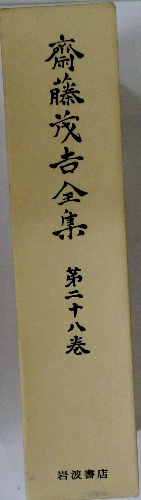 齋藤茂吉全集
第二十八巻
岩波書店